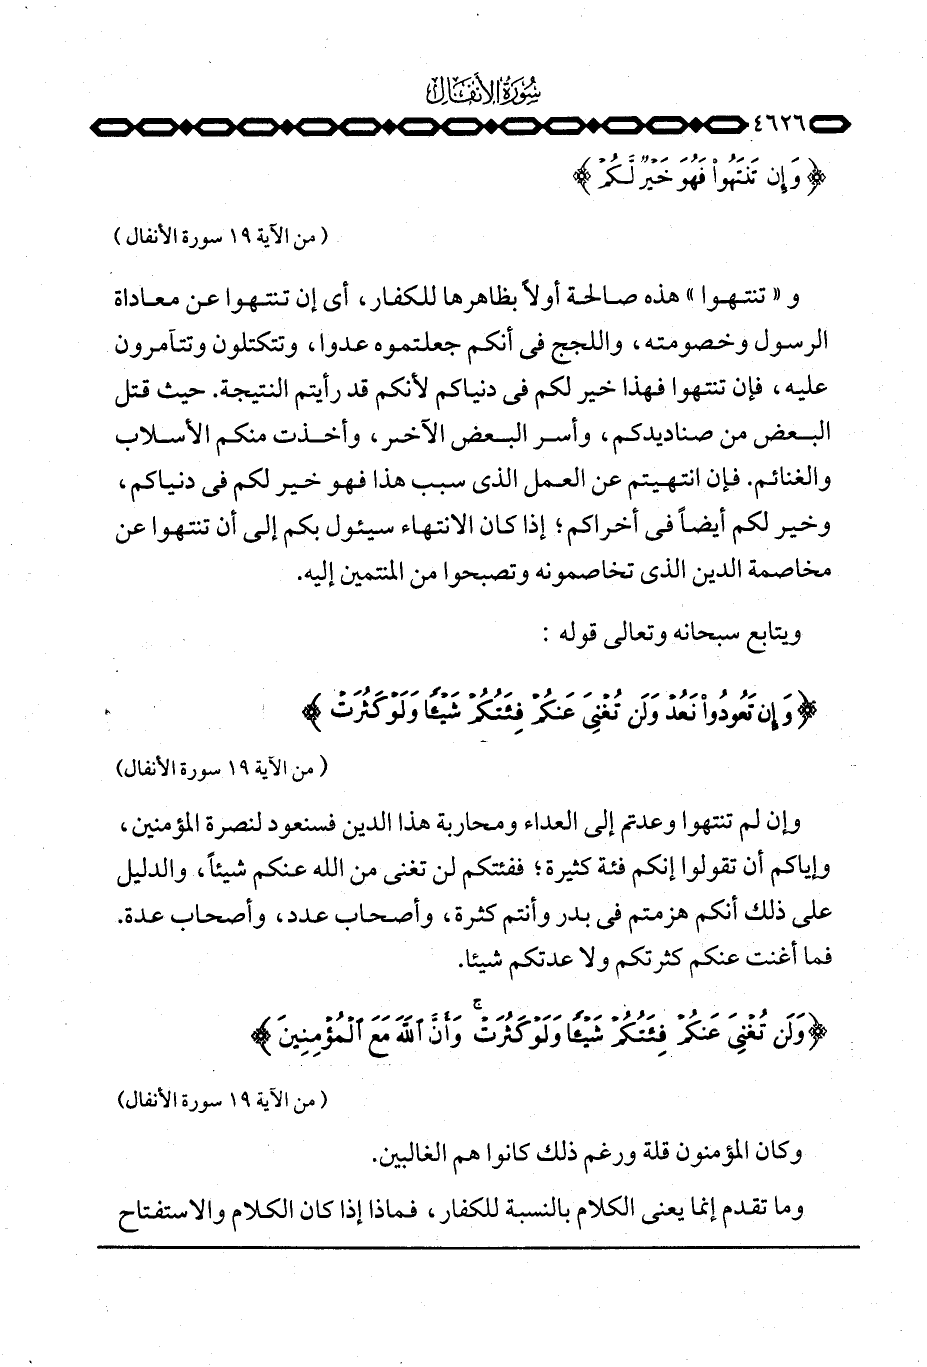 سُورَةُ الأَنفَالِ
٤٦٢٦
﴿ وَإِن تَنتَهُوا۟ فَهُوَ خَيْرٌ لَّكُمْ ﴾
( من الآية ١٩ سورة الأنفال )
و « تنتهوا » هذه صالحة أولاً بظاهرها للكفار، أى إن تنتهوا عن معاداة
الرسول وخصومته، واللجج فى أنكم جعلتموه عدوا، وتتكتلون وتتآمرون
عليه، فإن تنتهوا فهذا خير لكم فى دنياكم لأنكم قد رأيتم النتيجة. حيث قتل
البعض من صناديدكم، وأسر البعض الآخر، وأخذت منكم الأسلاب
والغنائم. فإن انتهيتم عن العمل الذى سبب هذا فهو خير لكم فى دنياكم،
وخير لكم أيضاً فى أخراكم؛ إذا كان الانتهاء سيئول بكم إلى أن تنتهوا عن
مخاصمة الدين الذى تخاصمونه وتصبحوا من المنتمين إليه.
ويتابع سبحانه وتعالى قوله :
﴿ وَإِن تَعُودُوا۟ نَعُدْ وَلَن تُغْنِىَ عَنكُمْ فِئَتُكُمْ شَيْـًٔا وَلَوْ كَثُرَتْ ﴾
( من الآية ١٩ سورة الأنفال)
وإن لم تنتهوا وعدتم إلى العداء ومحاربة هذا الدين فسنعود لنصرة المؤمنين،
وإياكم أن تقولوا إنكم فئة كثيرة؛ ففئتكم لن تغنى من الله عنكم شيئاً، والدليل
على ذلك أنكم هزمتم فى بدر وأنتم كثرة، وأصحاب عدد، وأصحاب عدة.
فما أغنت عنكم كثرتكم ولا عدتكم شيئا.
﴿ وَلَن تُغْنِىَ عَنكُمْ فِئَتُكُمْ شَيْـًٔا وَلَوْ كَثُرَتْ ۚ وَأَنَّ ٱللَّهَ مَعَ ٱلْمُؤْمِنِينَ ﴾
( من الآية ١٩ سورة الأنفال)
وكان المؤمنون قلة ورغم ذلك كانوا هم الغالبين.
وما تقدم إنما يعنى الكلام بالنسبة للكفار، فماذا إذا كان الكلام والاستفتاح